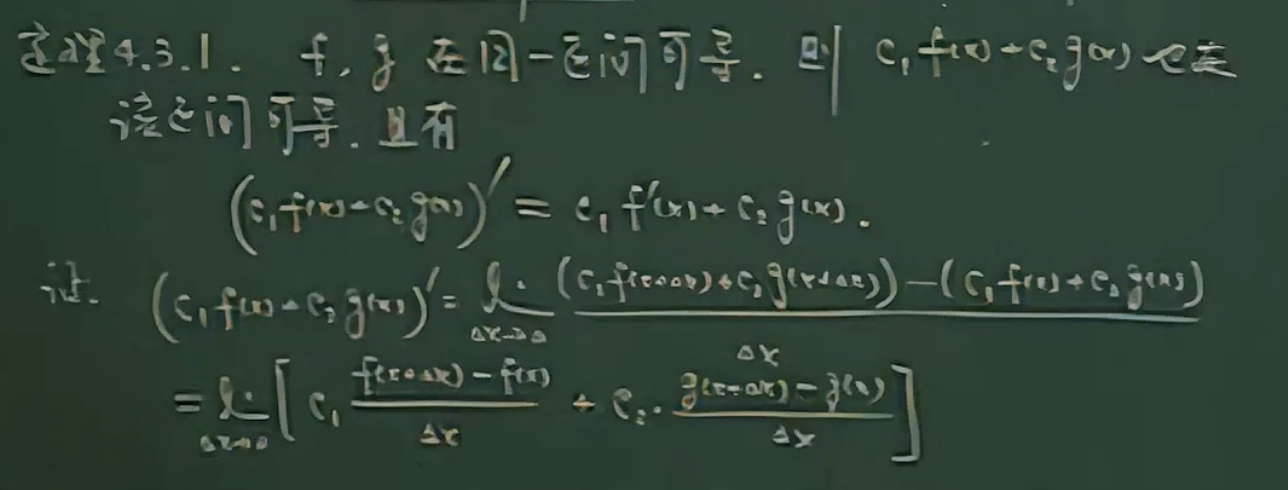 定理4.3.1. f, g 在同一区间可导. 则 c₁f(x)+c₂g(x) 也在
该区间可导. 且有
(c₁f(x)+c₂g(x))' = c₁f'(x)+c₂g(x).
证. (c₁f(x)+c₂g(x))' = lim_{Δx→0} ((c₁f(x+Δx)+c₂g(x+Δx))-(c₁f(x)+c₂g(x)))/Δx
= lim_{Δx→0} [c₁ (f(x+Δx)-f(x))/Δx + c₂· (g(x+Δx)-g(x))/Δx]